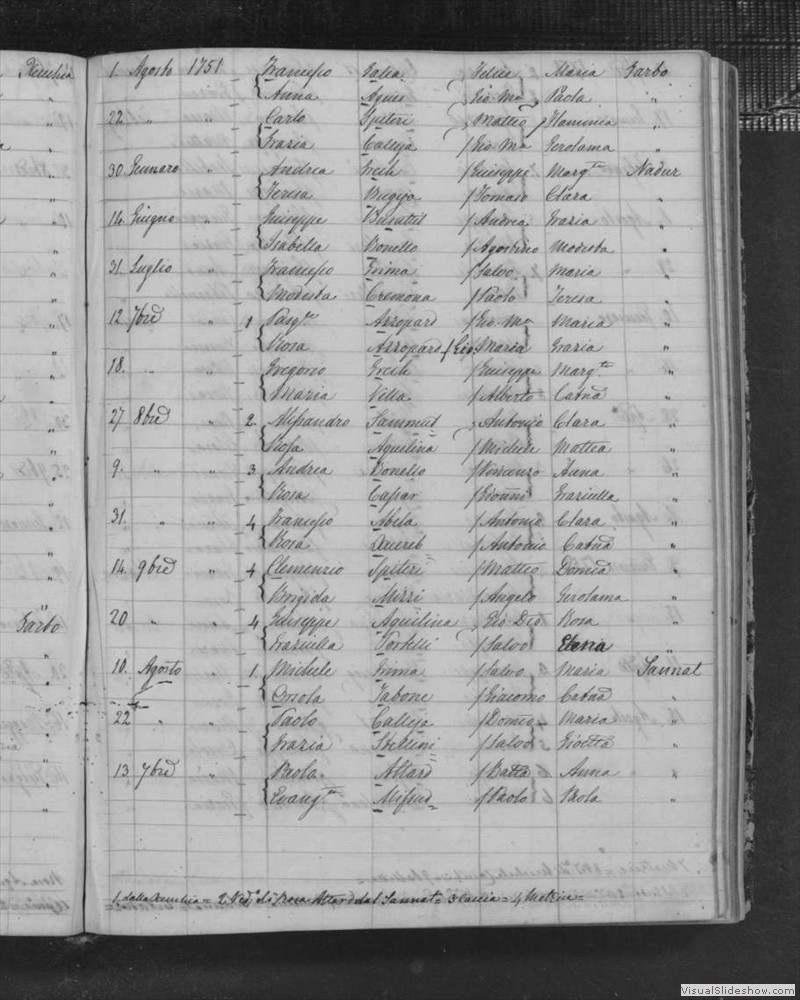 Xeuchia 1. Agosto 1751 Francesco Galea Felice Maria Zarbo
" Anna Agius Gio Ma Paola "
22. " " Carlo Spiteri Matteo Flaminia "
Grazia Calleja Gio Ma Gerolama "
30. Gennaro " Andrea Grech Giuseppe Marg.ta Nadur
Teresa Bugeja Tomaso Clara "
14. Giugno " Giuseppe Busuttil Andrea Grazia "
Isabella Bonello Agostino Modesta "
31. Luglio " Francesco Grima Salvo Maria "
Modesta Cremona Paolo Teresa "
12 7bre " 1 Pasq.le Azzopard Gio. Ma Maria "
Rosa Azzopard Gio Maria Grazia "
18. " " Gregorio Grech Giuseppe Marg.ta "
Maria Vella Alberto Catna "
27 8bre " 2. Alessandro Sammut Antonio Clara "
Rosa Aquilina Michele Mattea "
9. " " 3 Andrea Bonello Vincenzo Anna "
Rosa Caspar Gionni Graziulla "
31. " " 4 Francesco Abela Antonio Clara "
Rosa Xuereb Antonio Catna "
14. 9bre " 4 Clemenzio Spiteri Matteo Domca "
Brigida Mizzi Angelo Gerolama "
Zarbo 20 " " 4 Giuseppe Aquilina Gio Deo Rosa "
Graziulla Portelli Salvo Elena "
10. Agosto " 1. Michele Grima Salvo Maria Sannat
Orsola Tabone Giacomo Catna "
22 " " Paolo Calleja Domco Maria "
Grazia Sultini Salvo Gioetta "
13 7bre " Paola Attard Batta Anna "
Evang.ta Mifsud Paolo Paola "
1. dalla Xeuchia = 2 Ved. di Rosa Attard dal Sannat = 3 Caccia = 4
VisualSlideshow.com